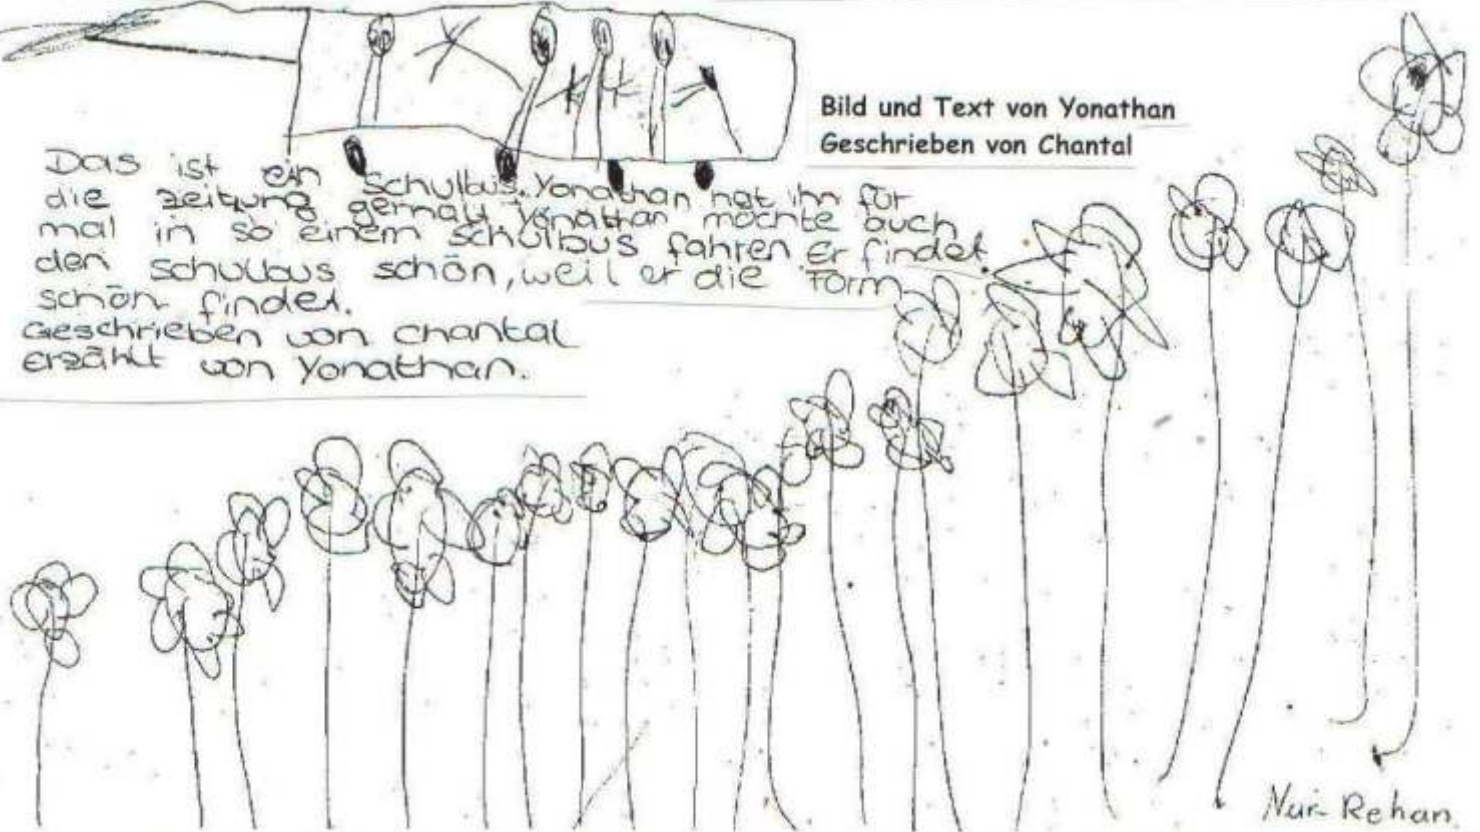 Bild und Text von Yonathan
Geschrieben von Chantal
Das ist ein Schulbus. Yonathan hat ihn für
die zeitung gemalt Yonathan möchte auch
mal in so einem schulbus fahren Er findet
den schulbus schön, weil er die Form
schön findet.
Geschrieben von chantal
Erzählt von Yonathan.
Nur Rehan